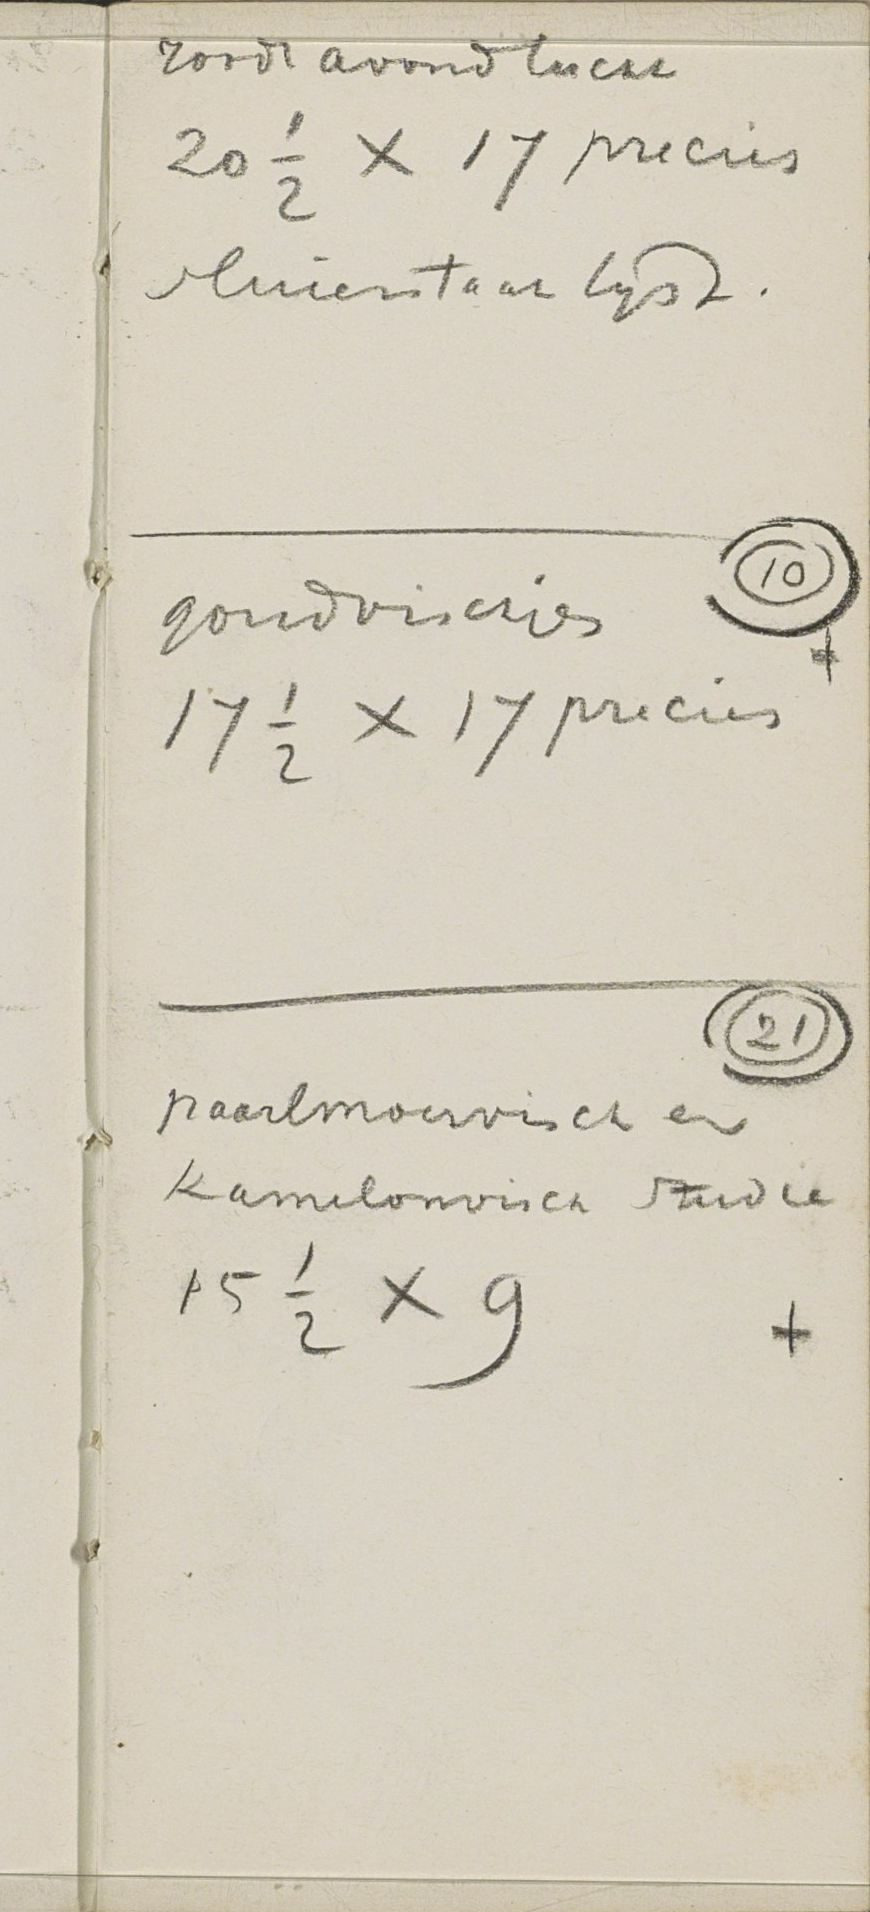 roode avondlucht
20 1/2 X 17 precies
sluierstaart lijst.
10
goudvischjes
+
17 1/2 X 17 precies
21
paarlmoervisch en
Kameleonvisch studie
15 1/2 X 9
+